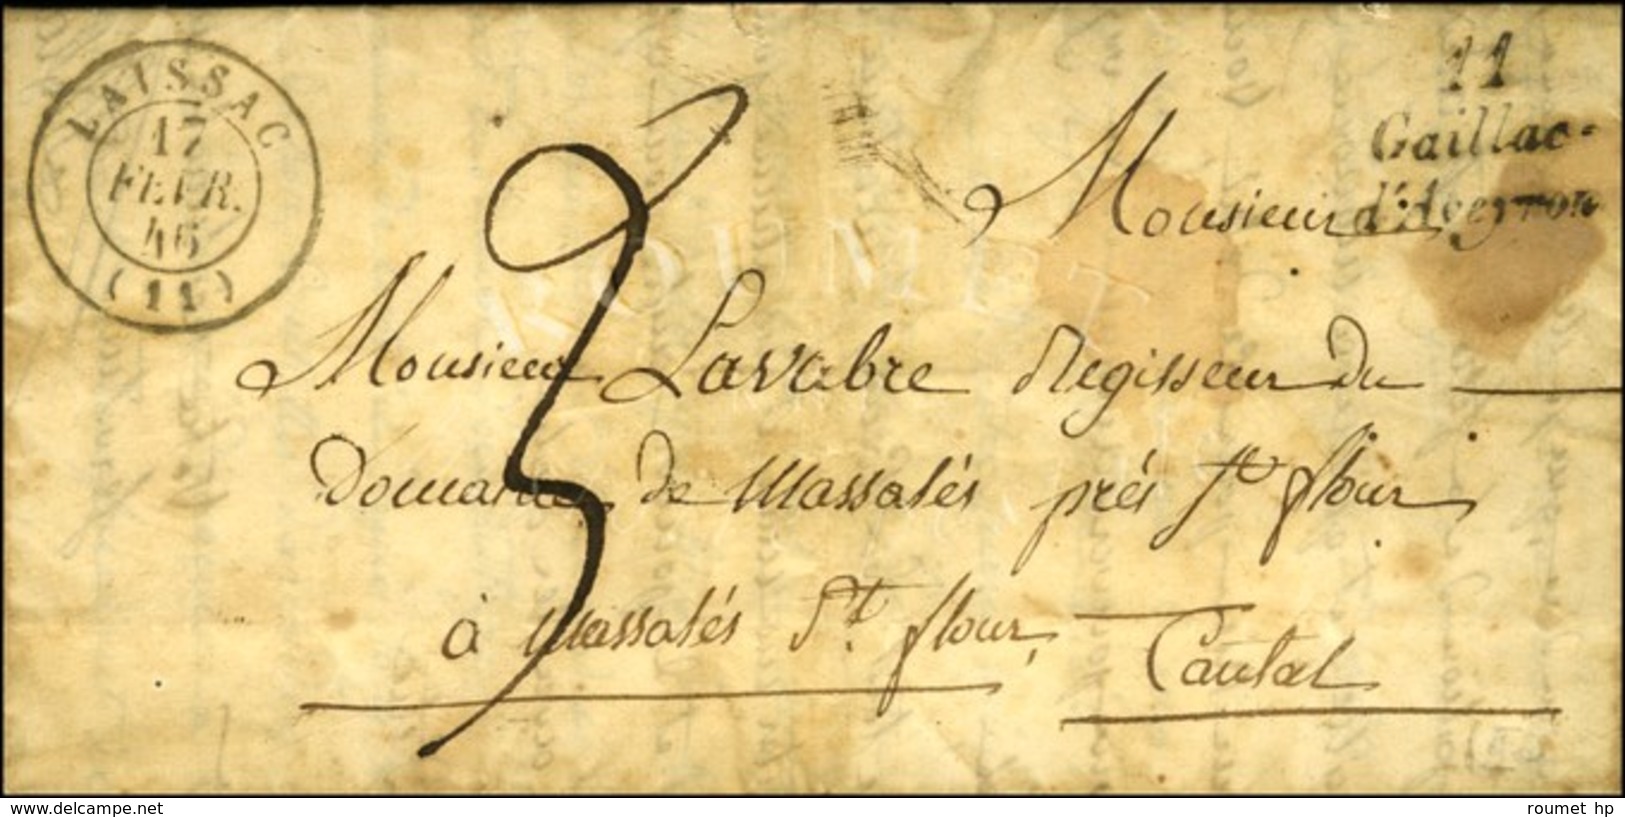 LAISSAC
17
FEVR.
46
(11)
11
Gaillac-
d'Aveyron
3
Monsieur
ROUMET
Monsieur Lavabre Regisseur du
Domaine de Massalés prés St flour
à Massalés St. flour,
Cantal
www.delcampe.net
roumet hp